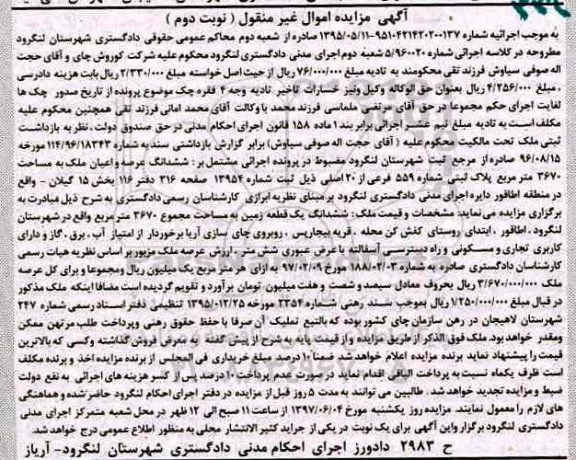 آگهی مزایده اموال غیر منقول ( نوبت دوم )
به موجب اجرائیه شماره ۹۵۱۰۴۲۱۴۲۰۲۰۰۱۳۷-۱۳۹۵/۰۵/۱۱ صادره از شعبه دوم محاکم عمومی حقوقی دادگستری لنگرود
مطروحه در کلاسه اجرائی ۵/۹۶۰۰۲۰ شعبه دوم اجرای مدنی دادگستری لنگرود محکوم علیه شرکت کوروش چای و آقای حجت
اله صوفی سیاوش فرزند تقی محکومند به تادیه مبلغ ۷۶/۰۰۰/۰۰۰ ریال از حیث اصل خواسته مبلغ ۲/۳۳۰/۰۰۰ ریال بابت هزینه دادرسی
، مبلغ ۴/۲۵۶/۰۰۰ ریال بعنوان حق الوکاله وکیل ونیز خسارات تاخیر تادیه وجه ۴ فقره چک موضوع پرونده از تاریخ صدور چک ها
لغایت اجرای حکم مجموعا در حق آقای مرتضی ملماسی فرزند محمد با وکالت آقای محمد امانی فرزند تقی همچنین محکوم علیه
مکلف است به تادیه مبلغ نیم عشر اجرائی برابر بند ۱ ماده ۱۵۸ قانون اجرای احکام مدنی در حق صندوق دولت ، نظر به بازداشت
ثبتی ملک تحت مالکیت محکوم علیه ( آقای حجت اله صوفی سیاوش) برابر گزارش بازداشتی سند به شماره ۱۱۴/۹۶/۱۸۳۴۳ مورخه
۹۶/۰۸/۱۵ صادره از مرجع ثبت شهرستان لنگرود مضبوط در پرونده اجرائی مشتمل بر : ششدانگ عرصه و اعیان ملک به مساحت
۳۶۷۰ متر مربع پلاک ثبتی شماره ۵۵۹ فرعی از ۲۰ اصلی ذیل ثبت شماره ۱۳۹۵۴ صفحه ۳۱۶ دفتر ۱۱۶ بخش ۱۵ گیلان – واقع
در منطقه اطاقور دایره اجرای مدنی دادگستری لنگرود بر مبنای نظریه ابرازی کارشناسان رسمی دادگستری به شرح ذیل مبادرت به
برگزاری مزایده می نماید: مشخصات و قیمت ملک : ششدانگ یک قطعه زمین به مساحت مجموع ۳۶۷۰ متر مربع واقع در شهرستان
لنگرود ، اطاقور ، ابتدای روستای کفش کن محله ، قریه بیجارپس ، روبروی چای سازی آریا برخوردار از امتیاز آب ، برق ، گاز و دارای
کاربری تجاری و مسکونی و راه دسترسی آسفالته با عرض عبوری شش متر ، ارزش عرصه ملک مزبور بر اساس نظریه هیات رسمی
کارشناسان دادگستری صادره به شماره ۱۸۸/۰۲/۰۳ مورخ ۹۷/۰۲/۰۹ به ازای هر متر مربع یک میلیون ریال و مجموعا و برای کل عرصه
ملک ۳/۶۷۰/۰۰۰/۰۰۰ ریال بحروف معادل سیصد و شصت و هفت میلیون تومان برآورد و تقویم گردیده است مضافا اینکه ملک مذکور
در قبال مبلغ ۱/۲۵۰/۰۰۰/۰۰۰ ریال بموجب سند رهنی شماره ۲۳۵۴ مورخه ۱۳۹۵/۰۱/۲۵ تنظیمی دفتر اسناد رسمی شماره ۲۴۷
شهرستان لاهیجان در رهن سازمان چای کشور بوده که بالتبع تملیک آن صرفا با حفظ حقوق رهنی و پرداخت طلب مرتهن ممکن
ومقدر خواهد بود. ملک فوق الذکر از طریق مزایده و از قیمت پایه به شرح از پیش گفته به معرض فروش گذاشته و کسی که بالاترین
قیمت را پیشنهاد نماید برنده مزایده اعلام خواهد شد ضمنا ۱۰ درصد مبلغ خریداری فی المجلس از برنده مزایده اخذ و برنده مکلف
است ظرف یکماه نسبت به پرداخت الباقی اقدام نماید در صورت عدم پرداخت ۱۰ درصد پس از کسر هزینه های اجرائی به نفع دولت
ضبط و مزایده تجدید خواهد شد . طالبین می توانند به مدت ۵ روز قبل از مزایده در دفتر اجرای احکام لنگرود حاضر شده و هماهنگی
های لازم را معمول نمایند. مزایده روز یکشنبه مورخ ۱۳۹۷/۰۶/۰۴ از ساعت ۱۱ صبح الی ۱۲ ظهر در محل شعبه متمرکز اجرای مدنی
دادگستری لنگرود برگزار و این آگهی برای یک نوبت در یکی از جراید کثیر الانتشار محلی به منظور اطلاع عمومی درج خواهد شد.
ح ۲۹۸۳ دادورز اجرای احکام مدنی دادگستری شهرستان لنگرود- آریاز